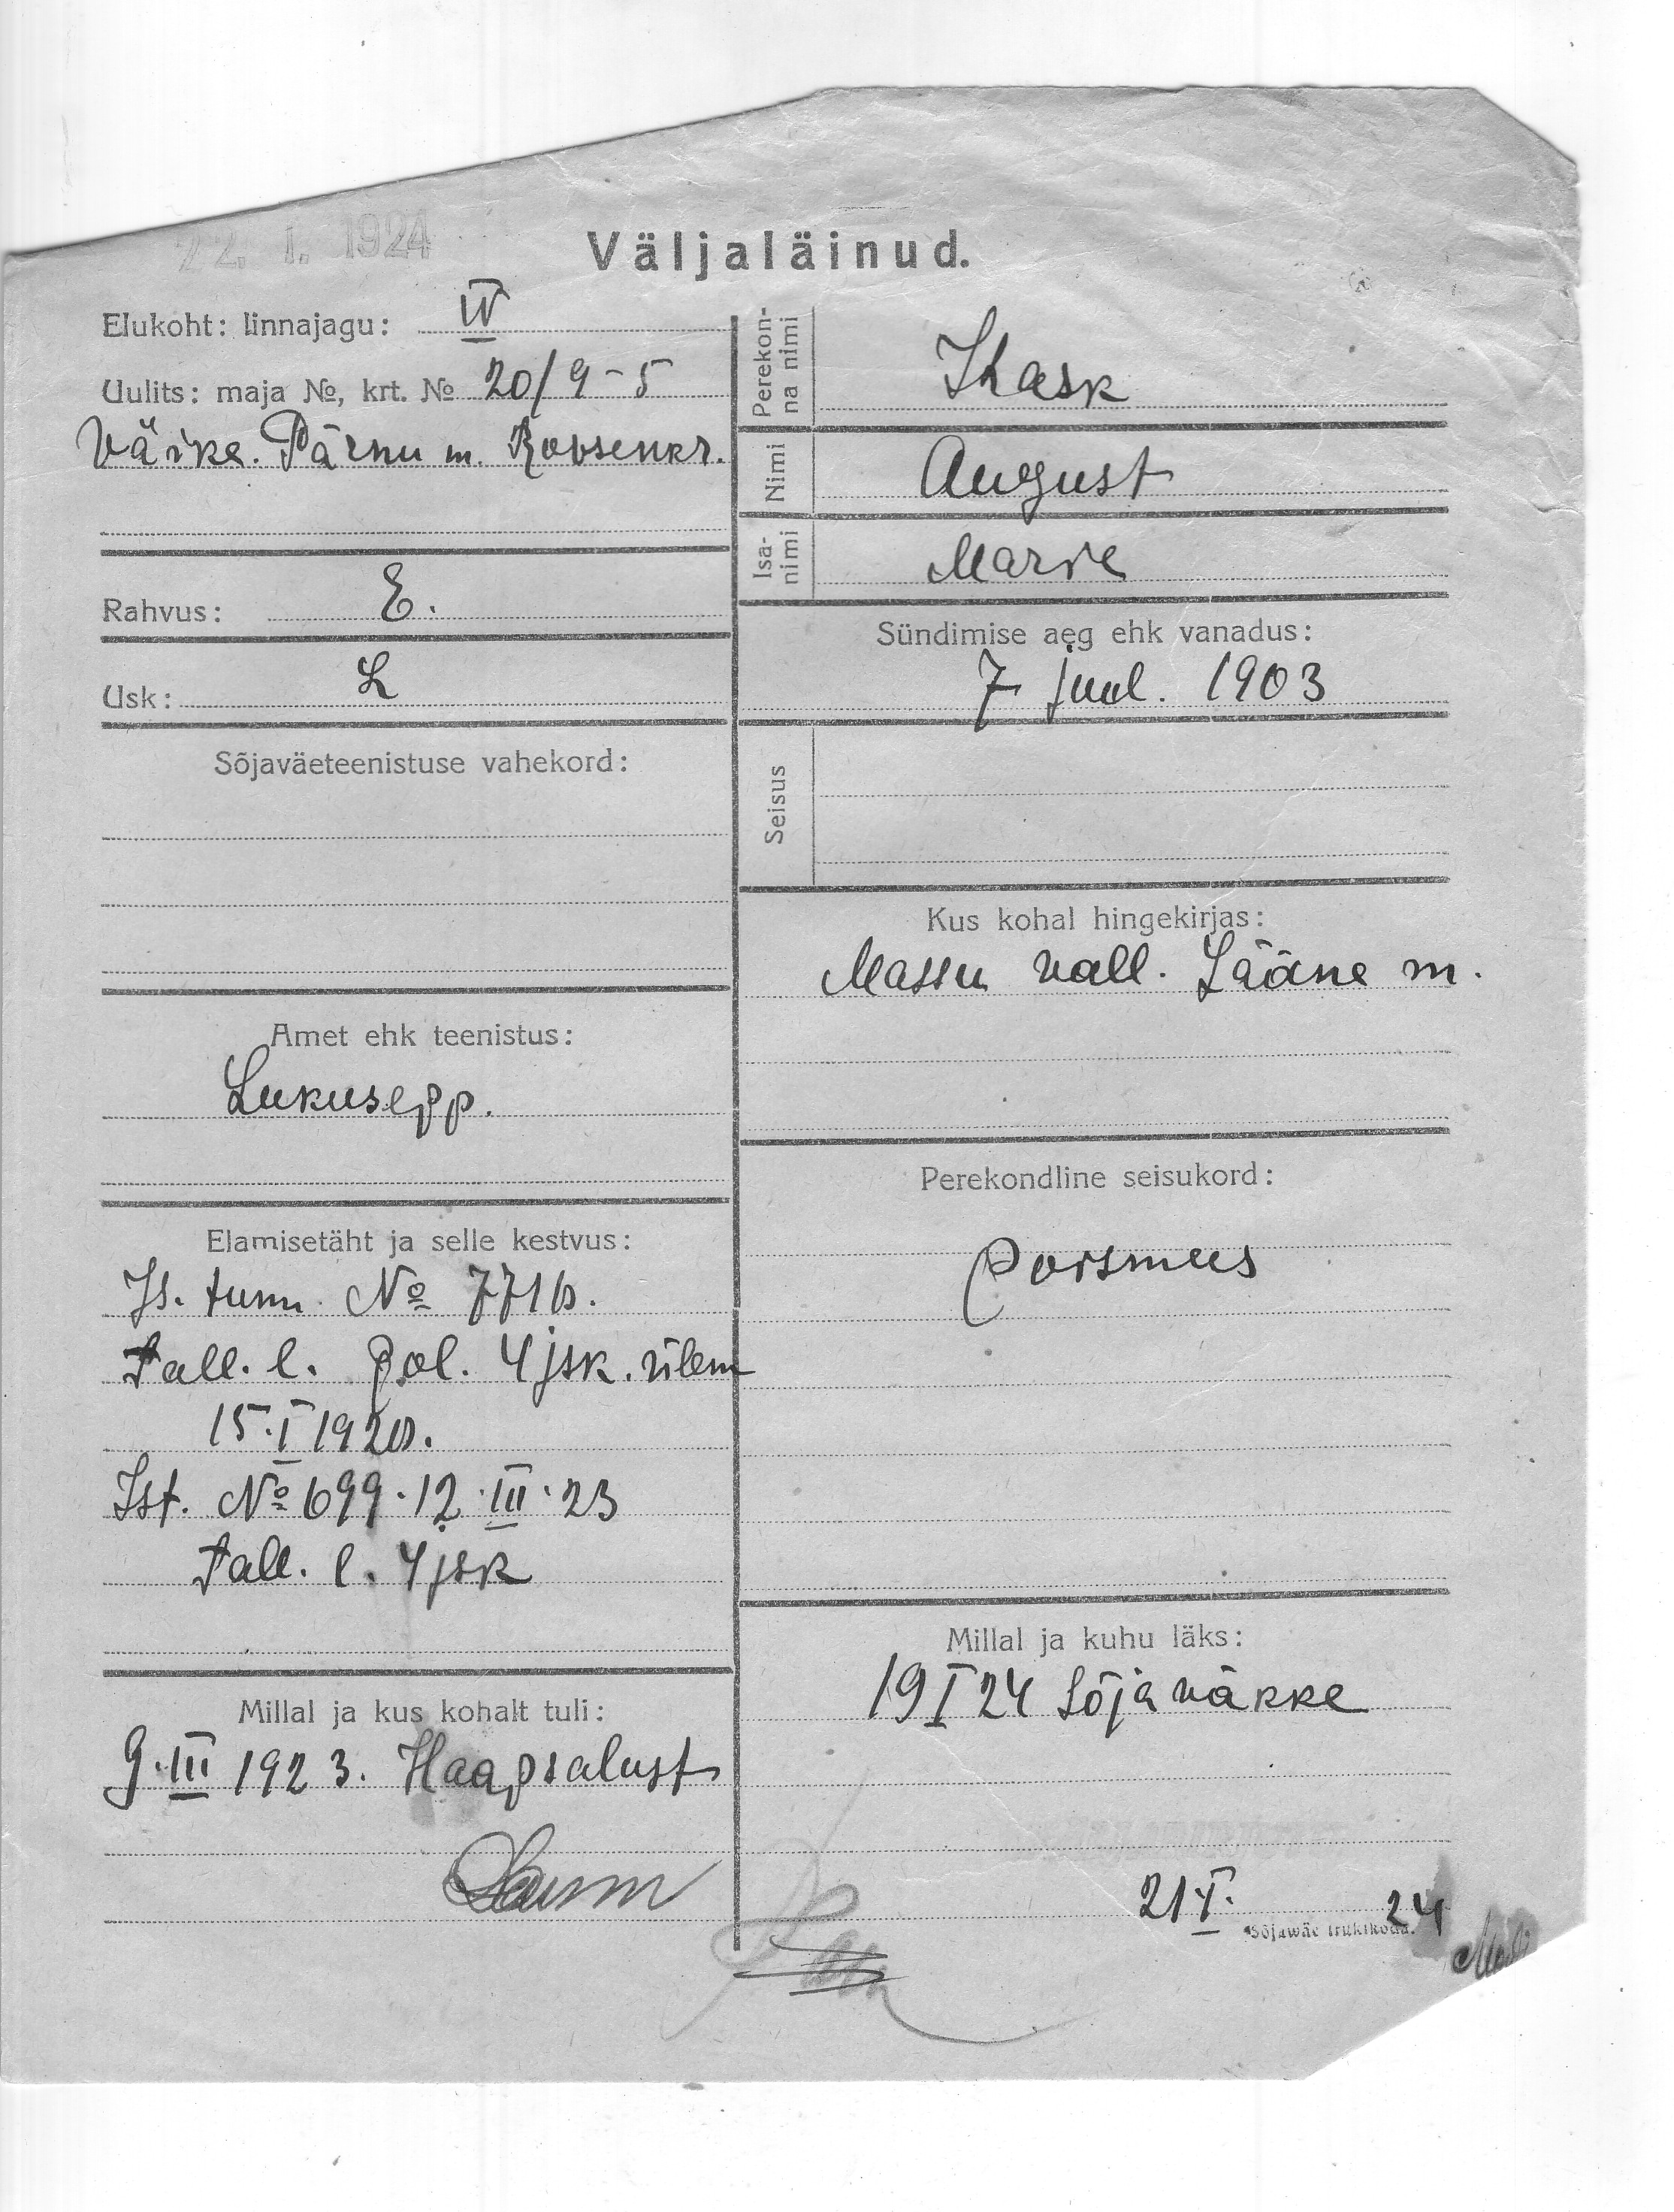 22. I. 1924
Väljaläinud.
Elukoht: linnajagu: IV
Uulits: maja №, krt. № 20/9-5
Väike. Pärnu m.
Rahvus: E.
Usk: L
Sõjaväeteenistuse vahekord:
Amet ehk teenistus:
Lukusepp.
Elamisetäht ja selle kestvus:
Is. tunn. № 7716.
Tall. l. pol. 4 jsk. ülem
15.I 1920.
Ist. № 699.12.III.23
Tall. l. 4 jsk
Millal ja kus kohalt tuli:
9.III 1923. Haapsalust
Perekon-
na nimi
Kask
Nimi
August
Isa-
nimi
Marie
Sündimise aeg ehk vanadus:
7 juul. 1903
Seisus
Kus kohal hingekirjas:
Massu vall. Lääne m.
Perekondline seisukord:
poismees
Millal ja kuhu läks:
19 I 24 Sõjaväkke
21 I. 24
Sõjawäe trükikoda.